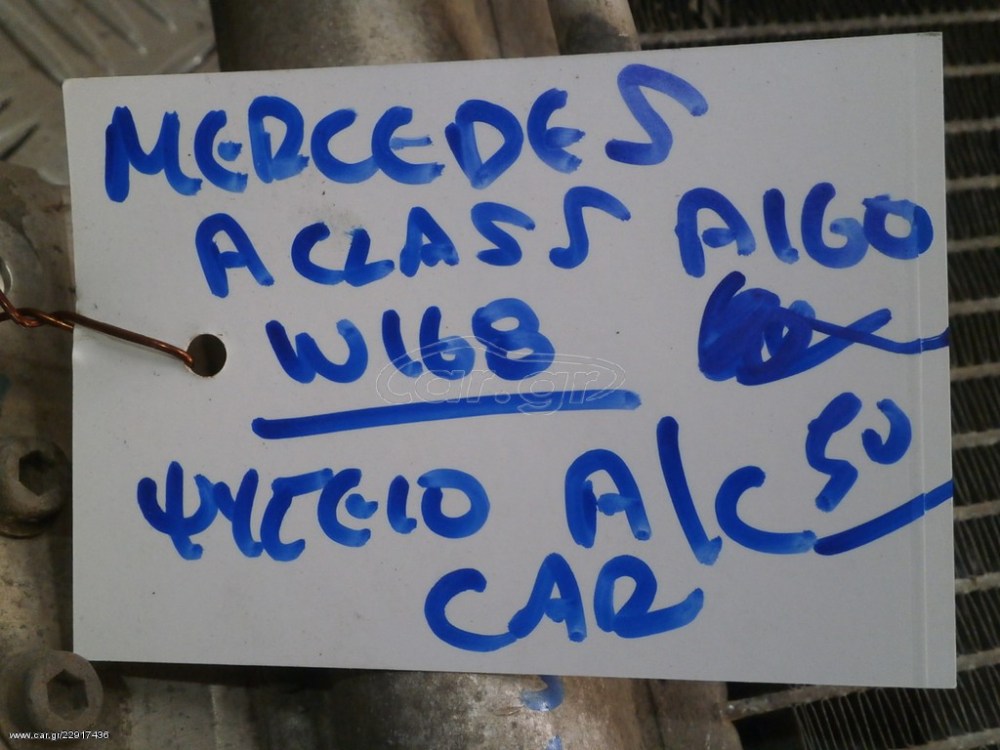 MERCEDES
A CLASS A160
W168
car.gr
ΨΥΓΕΙΟ A/C 50
CAR
www.car.gr/22917436